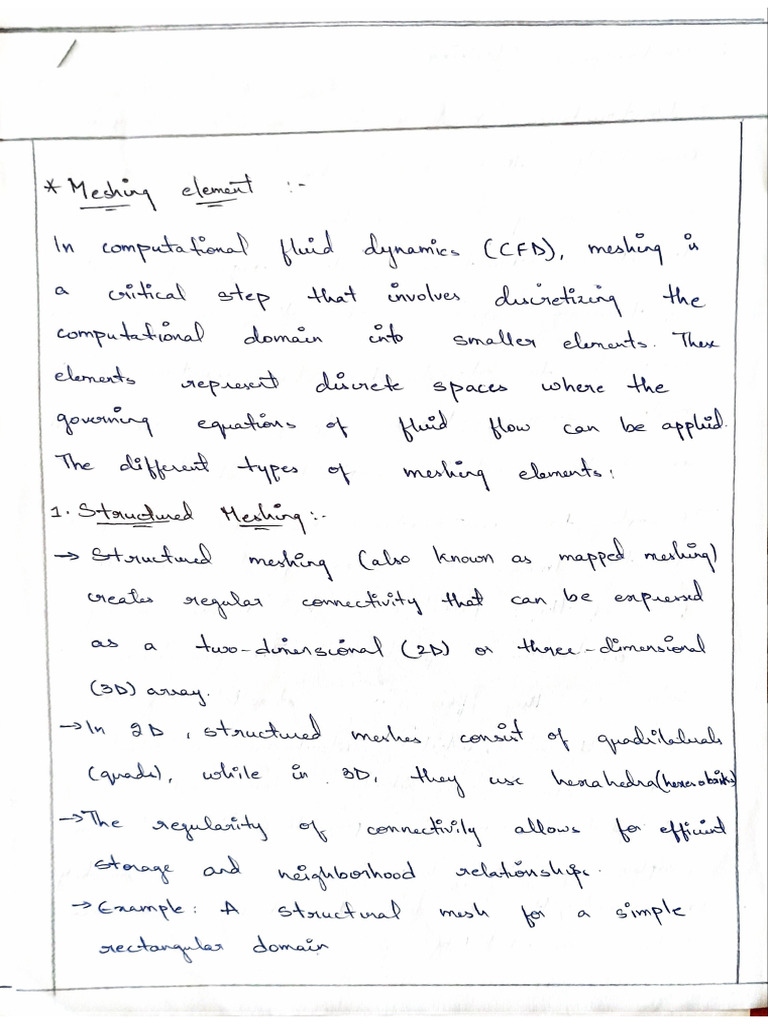 * Meshing element :-
In computational fluid dynamics (CFD), meshing is
a critical step that involves discretizing the
computational domain into smaller elements. These
elements represent discrete spaces where the
governing equations of fluid flow can be applied.
The different types of meshing elements:
1. Structured Meshing:-
→ Structured meshing (also known as mapped meshing)
creates regular connectivity that can be expressed
as a two-dimensional (2D) or three-dimensional
(3D) array.
→ In 2D, structured meshes consist of quadrilaterals
(quads), while in 3D, they use hexahedra
→ The regularity of connectivity allows for efficient
storage and neighborhood relationships.
→ Example: A structural mesh for a simple
rectangular domain